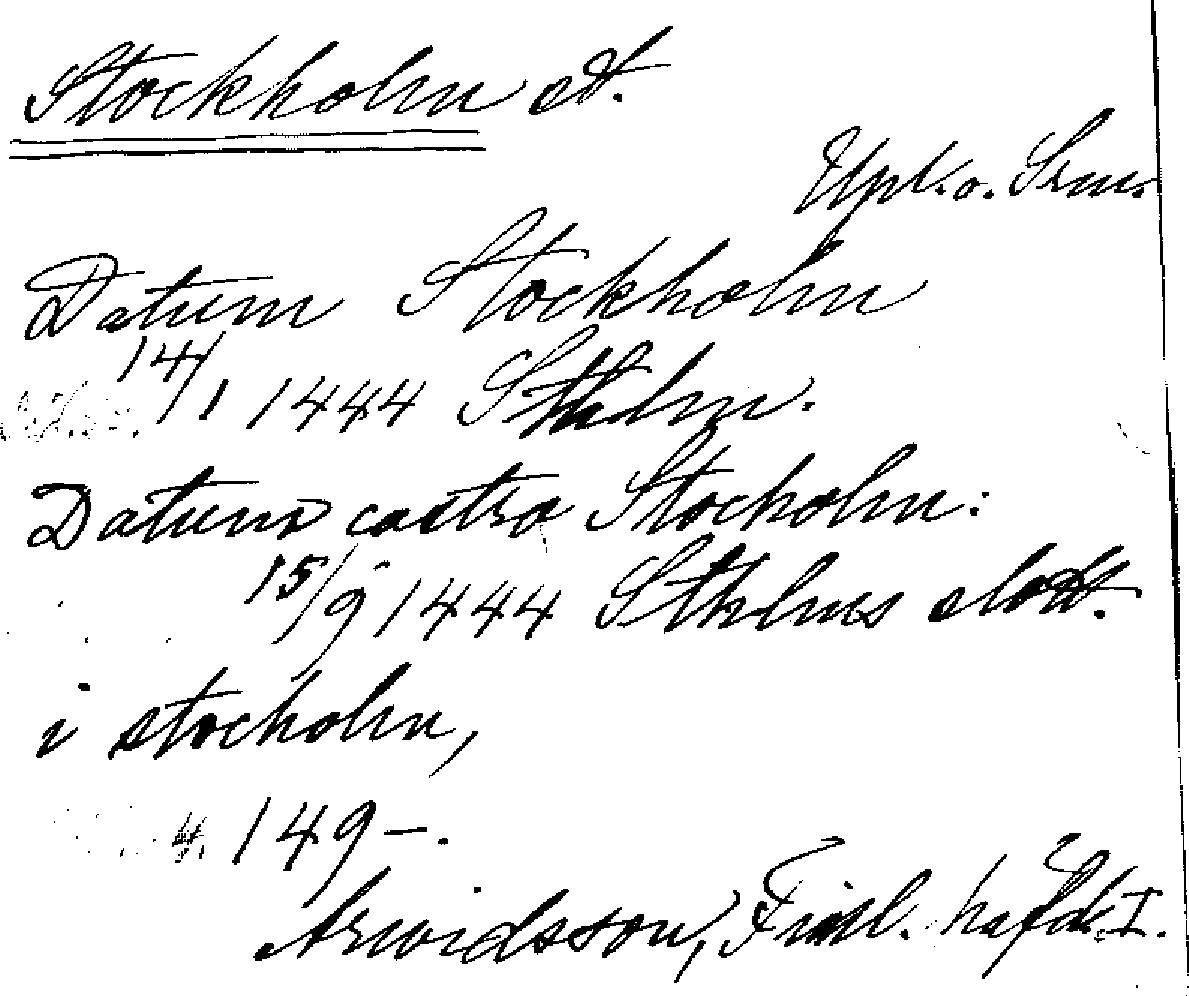 Stockholm st.
Upl. o. Srm.
Datum Stockholm
14/1 1444 Sthlm.
Datum castro Stocholm:
15/9 1444 Sthlms slott.
i stocholm,
149-.
Arwidsson, Finl. häfd. I.